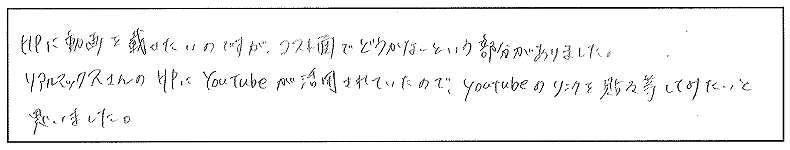 HPに動画を載せたいのですが、コスト面でどうかなという部分がありました。
リアルマックスさんのHPにYouTubeが活用されていたので、youtubeのリンクを貼る等してみたいと
思いました。